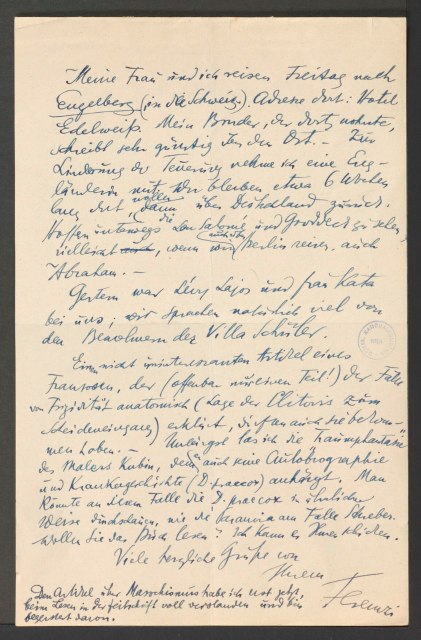 Meine Frau und ich reisen Freitag nach
Engelberg (in die Schweiz). Adresse dort: Hotel
Edelweiß. Mein Bruder, der dort wohnte,
schreibt sehr günstig über den Ort. – Zur
Linderung der Teuerung nehme ich eine Eng-
länderin mit. Wir bleiben etwa 6 Wochen
lang dort, wollen dann über Deutschland zurück.
Hoffen unterwegs die Lou Salomé und Groddeck zu sehen,
vielleicht, wenn wir Berlin reisen, auch
Abraham. –
Gestern war Lévy Lajos und frau Kata
bei uns; wir sprachen natürlich viel von
den Bewohnern der Villa Schuler.
Einen nicht uninteressanten Artikel eines
Franzosen, der (offenbar nur einen Teil!) der Fälle
von Frigidität anatomisch (Lage der Clitoris zum
Scheideneingang) erklärt,
men haben. – Unlängst las ich die Traumphantasie
des Malers Kubin, dem auch seine Autobiographie
und Krankengeschichte (D. praecox) anhängt. Man
könnte an diesem Falle die D. praecox in ähnlicher
Weise wie die Paranoia am Falle Schreber.
Wollen Sie das Buch lesen? Ich kann es Ihnen schicken.
Viele herzliche Grüße von
Ihrem
Ferenczi
Den Artikel über Masochismus habe ich erst jetzt,
beim Lesen in der Zeitschrift voll verstanden und bin
begeistert davon.